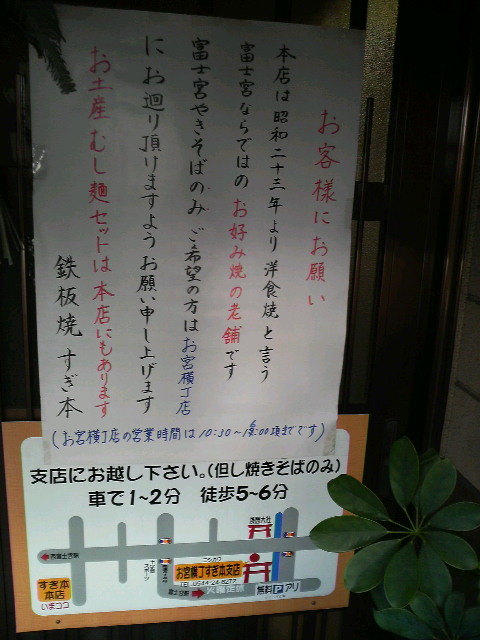 お客様にお願い
本店は昭和二十三年より洋食焼と言う
富士宮ならではのお好み焼の老舗です
富士宮やきそばのみご希望の方はお宮横丁店
にお廻り頂けますようお願い申し上げます
お土産むし麺セットは本店にもあります
鉄板焼すぎ本
(お宮横丁店の営業時間は10:30〜
支店にお越し下さい。(但し焼きそばのみ)
車で1~2分 徒歩5~6分
浅間大社
お宮横丁すぎ本支店
すぎ本
本店
いまココ
無料 P アリ